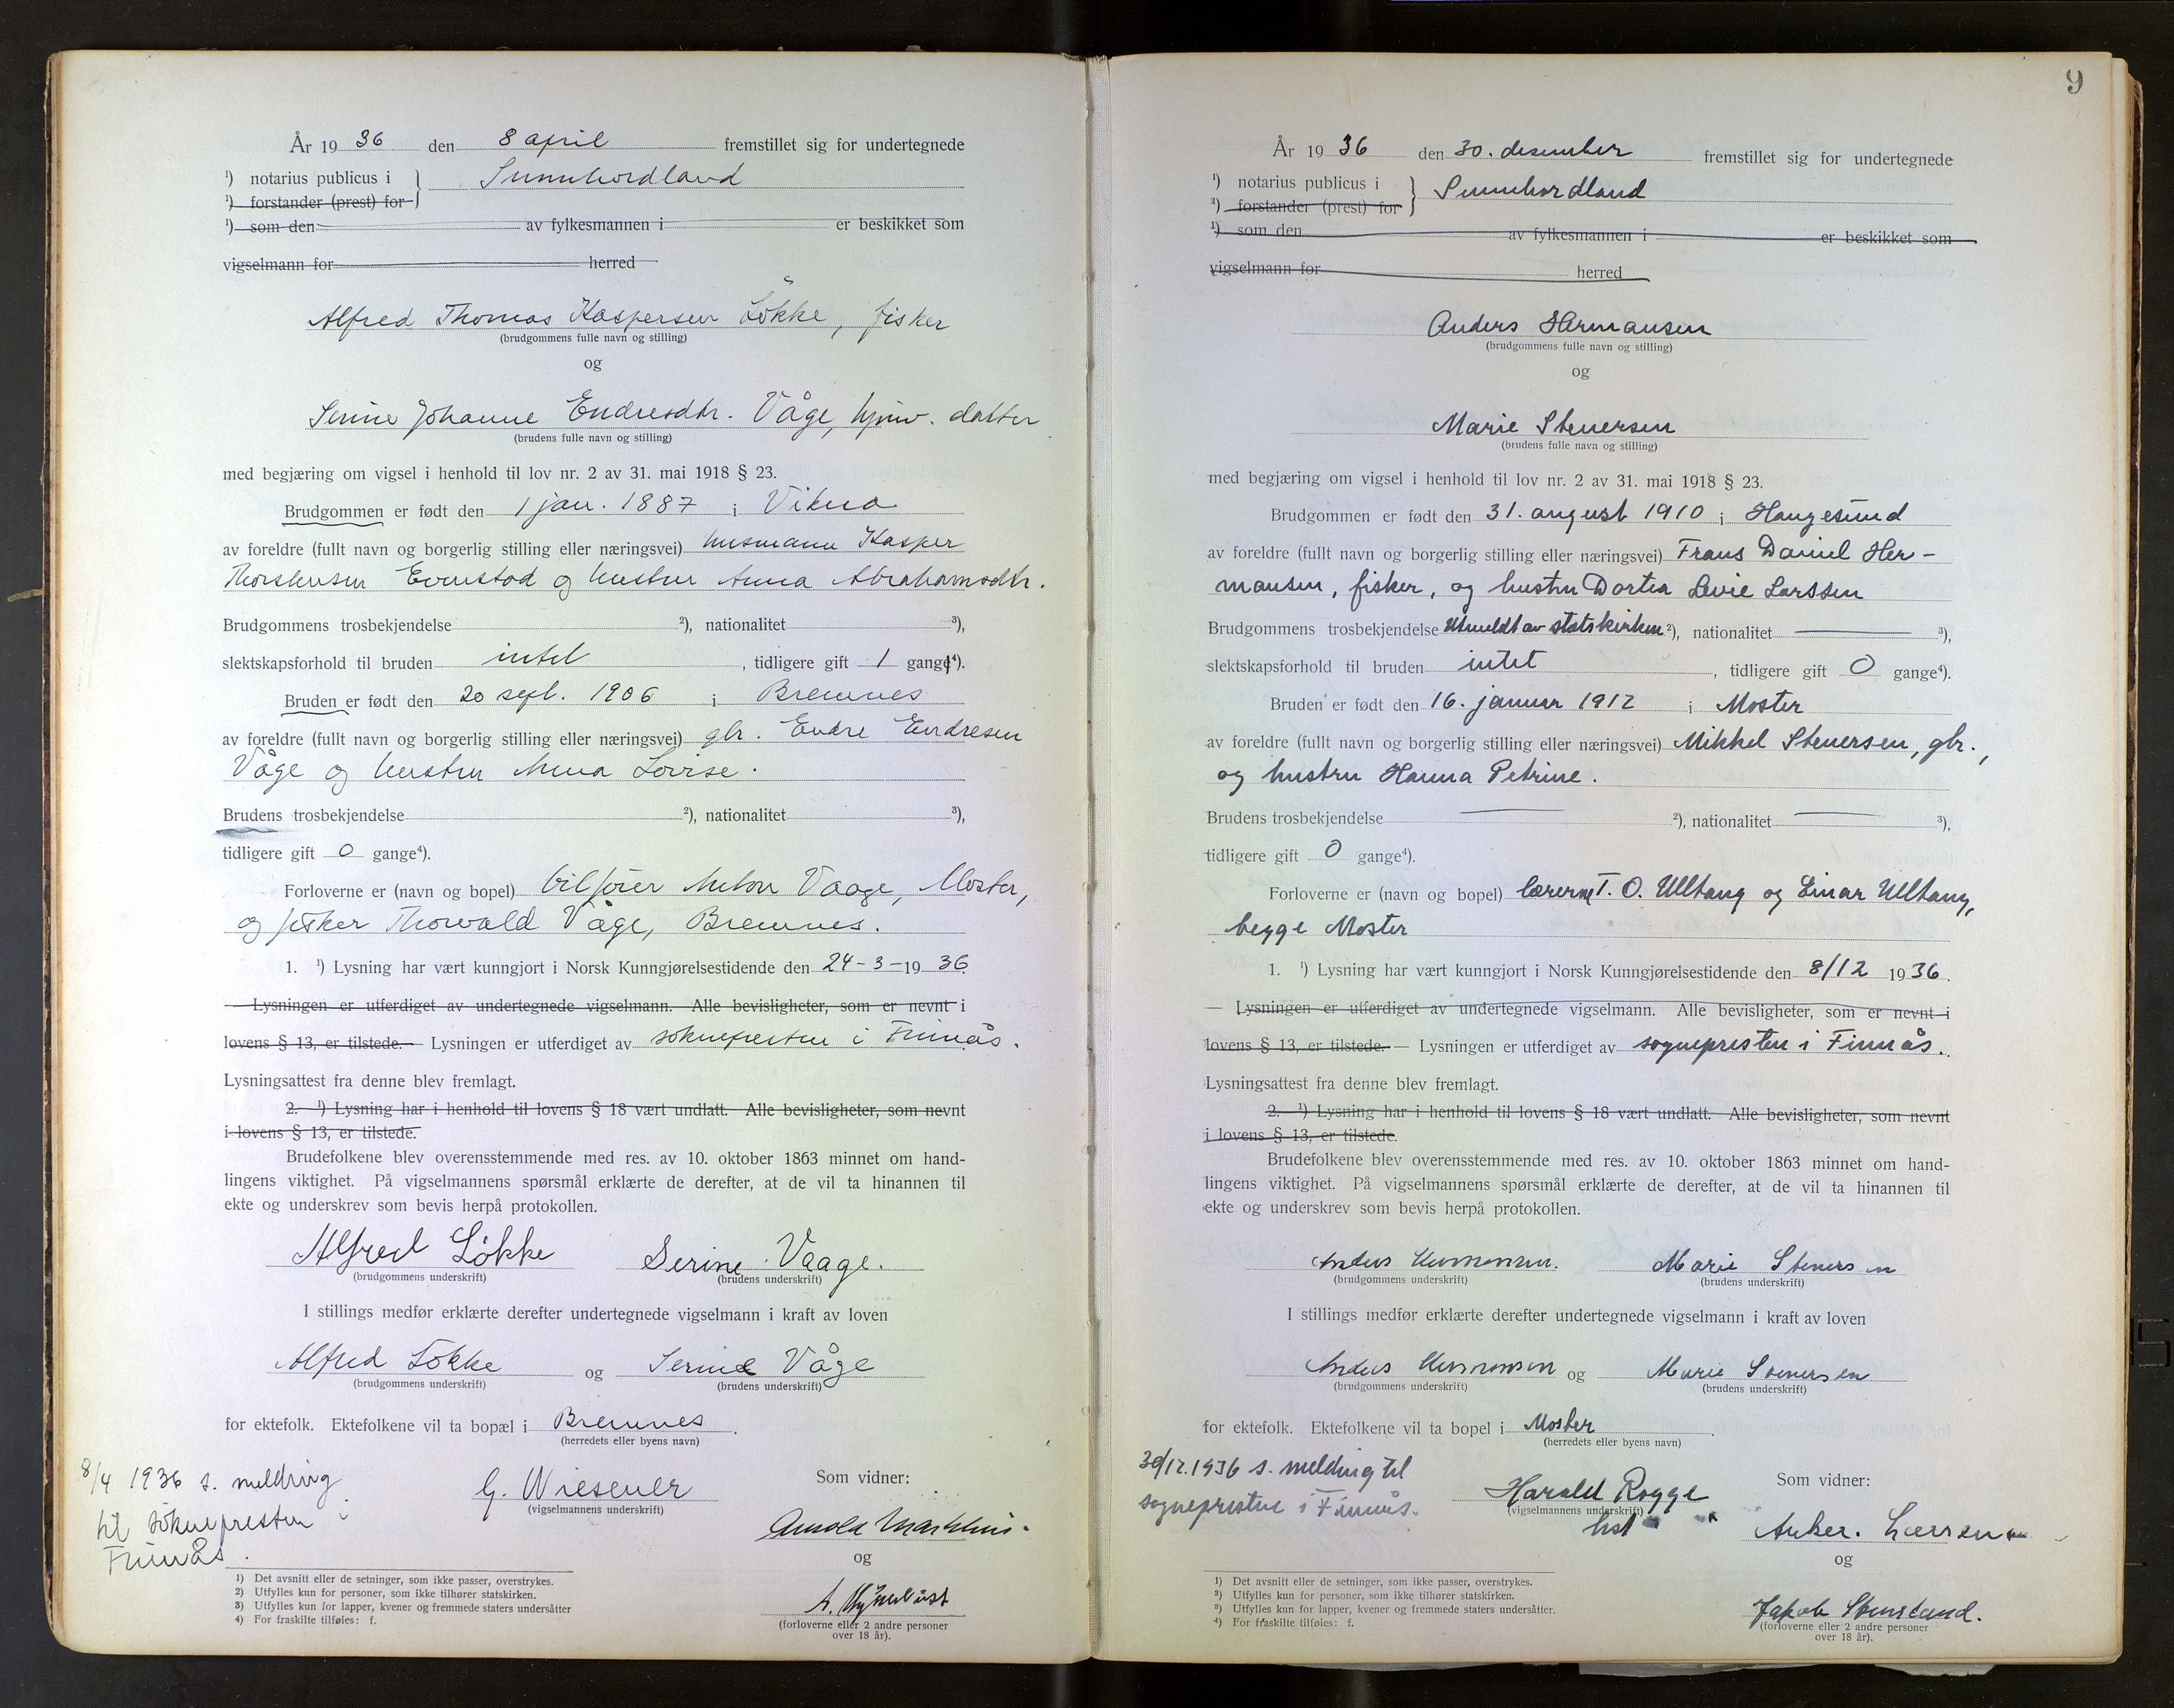 År 19 36 den 8 april fremstillet sig for undertegnede
¹) notarius publicus i } Sunnhordland
¹) forstander (prest) for
¹) som den av fylkesmannen i er beskikket som
vigselmann for herred
Alfred Thomas Kaspersen Lökke, fisker
(brudgommens fulle navn og stilling)
og
Serine Johanne Endresdtr. Våge, hjmv. datter
(brudens fulle navn og stilling)
med begjæring om vigsel i henhold til lov nr. 2 av 31. mai 1918 § 23.
Brudgommen er født den 1 jan. 1887 i Vikna
av foreldre (fullt navn og borgerlig stilling eller næringsvei) husmann Kasper
Thorstensen Evenstad og hustru Anna Abrahamsdtr.
Brudgommens trosbekjendelse ²), nationalitet ³),
slektskapsforhold til bruden intet, tidligere gift 1 gang⁴).
Bruden er født den 20 sept. 1906 i Bremnes
av foreldre (fullt navn og borgerlig stilling eller næringsvei) gbr. Endre Endresen
Våge og hustru Anna Lovise.
Brudens trosbekjendelse ²), nationalitet ³),
tidligere gift 0 gange⁴).
Forloverne er (navn og bopel) bileier Anton Vaage, Moster,
og fisker Thorvald Våge, Bremnes.
1. ¹) Lysning har vært kunngjort i Norsk Kunngjørelsestidende den 24-3-19 36
— Lysningen er utferdiget av undertegnede vigselmann. Alle bevisligheter, som er nevnt i
lovens § 13, er tilstede. — Lysningen er utferdiget av soknepresten i Finnås.
Lysningsattest fra denne blev fremlagt.
2. ¹) Lysning har i henhold til lovens § 18 vært undlatt. Alle bevisligheter, som nevnt
i lovens § 13, er tilstede.
Brudefolkene blev overensstemmende med res. av 10. oktober 1863 minnet om hand-
lingens viktighet. På vigselmannens spørsmål erklærte de derefter, at de vil ta hinannen til
ekte og underskrev som bevis herpå protokollen.
Alfred Lökke Serine Vaage.
(brudgommens underskrift) (brudens underskrift)
I stillings medfør erklærte derefter undertegnede vigselmann i kraft av loven
Alfred Lökke og Serine Våge
(brudgommens underskrift) (brudens underskrift)
for ektefolk. Ektefolkene vil ta bopæl i Bremnes.
(herredets eller byens navn)
8/4 1936 s. melding
til soknepresten i
Finnås.
G. Wiesener
(vigselmannens underskrift)
Som vidner:
Arnold
og
(forloverne eller 2 andre personer
over 18 år).
1) Det avsnitt eller de setninger, som ikke passer, overstrykes.
2) Utfylles kun for personer, som ikke tilhører statskirken.
3) Utfylles kun for lapper, kvener og fremmede staters undersåtter
4) For fraskilte tilføies: f.
9
År 19 36 den 30. desember fremstillet sig for undertegnede
¹) notarius publicus i } Sunnhordland
¹) forstander (prest) for
¹) som den av fylkesmannen i er beskikket som
vigselmann for herred
Anders Hermansen
(brudgommens fulle navn og stilling)
og
Marie Stenersen
(brudens fulle navn og stilling)
med begjæring om vigsel i henhold til lov nr. 2 av 31. mai 1918 § 23.
Brudgommen er født den 31. august 1910 i Haugesund
av foreldre (fullt navn og borgerlig stilling eller næringsvei) Frans Daniel Her-
mansen, fisker, og hustru Dortea Levie Larssen
Brudgommens trosbekjendelse Utmeldt av statskirken ²), nationalitet — ³),
slektskapsforhold til bruden intet, tidligere gift 0 gange⁴).
Bruden er født den 16. januar 1912 i Moster
av foreldre (fullt navn og borgerlig stilling eller næringsvei) Mikkel Stenersen, gbr.,
og hustru Hanna Petrine.
Brudens trosbekjendelse — ²), nationalitet — ³),
tidligere gift 0 gange⁴).
Forloverne er (navn og bopel) lærerne T. O. Ulltang og Einar Ulltang,
begge Moster
1. ¹) Lysning har vært kunngjort i Norsk Kunngjørelsestidende den 8/12 19 36.
— Lysningen er utferdiget av undertegnede vigselmann. Alle bevisligheter, som er nevnt i
lovens § 13, er tilstede. — Lysningen er utferdiget av sognepresten i Finnås.
Lysningsattest fra denne blev fremlagt.
2. ¹) Lysning har i henhold til lovens § 18 vært undlatt. Alle bevisligheter, som nevnt
i lovens § 13, er tilstede.
Brudefolkene blev overensstemmende med res. av 10. oktober 1863 minnet om hand-
lingens viktighet. På vigselmannens spørsmål erklærte de derefter, at de vil ta hinannen til
ekte og underskrev som bevis herpå protokollen.
Anders Hermansen. Marie Stenersen
(brudgommens underskrift) (brudens underskrift)
I stillings medfør erklærte derefter undertegnede vigselmann i kraft av loven
Anders Hermansen og Marie Stenersen
(brudgommens underskrift) (brudens underskrift)
for ektefolk. Ektefolkene vil ta bopel i Moster.
(herredets eller byens navn)
30/12.1936 s. melding til
sogneprestene i Finnås.
Harald Rogge
(vigselmannens underskrift)
cst
Som vidner:
Anker. Larsen
og
Jakob Stensland.
(forloverne eller 2 andre personer
over 18 år).
1) Det avsnitt eller de setninger, som ikke passer, overstrykes.
2) Utfylles kun for personer, som ikke tilhører statskirken.
3) Utfylles kun for lapper, kvener og fremmede staters undersåtter.
4) For fraskilte tilføies: f.